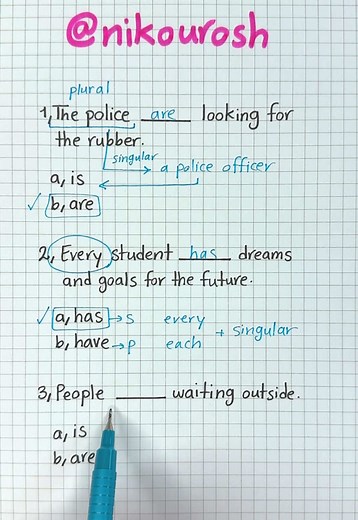 @nikourosh
plural
1, The police are looking for
the rubber.
singular
a police officer
a, is
✓ b, are
2, Every student has dreams
and goals for the future.
✓ a, has → s every
+ singular
b, have → p each
3, People ______ waiting outside.
a, is
b, are